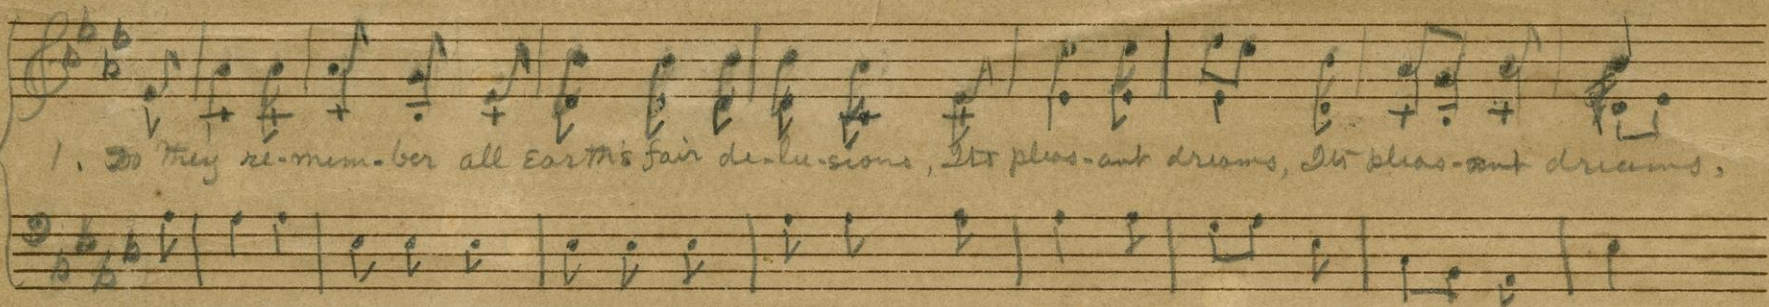 1. Do they re-mem-ber all Earth's fair de-lu-sions, Its pleas-ant dreams, Its pleas-ant dreams.